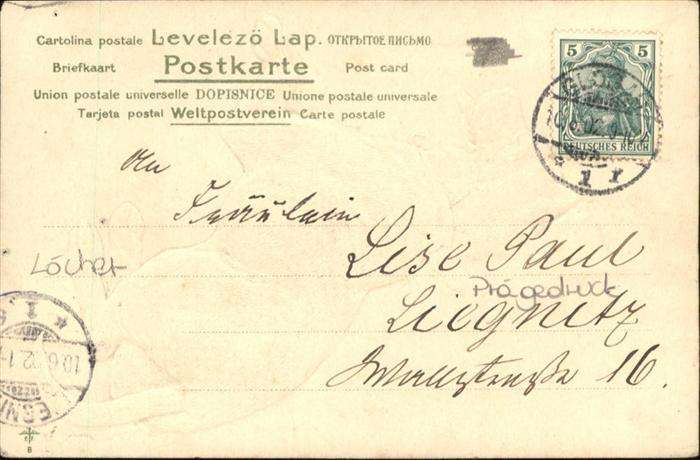 Cartolina postale Levelező Lap. ОТКРЫТОЕ ПИСЬМО
Briefkaart Postkarte Post card
Union postale universelle DOPISNICE Unione postale universale
Tarjeta postal Weltpostverein Carte postale
5 5
DEUTSCHES REICH
1 r
An
Fräulein
Lise Paul
Löcher
Prägedruck
Liegnitz
Wallstraße 16.
* 1
10.6.02.1
8